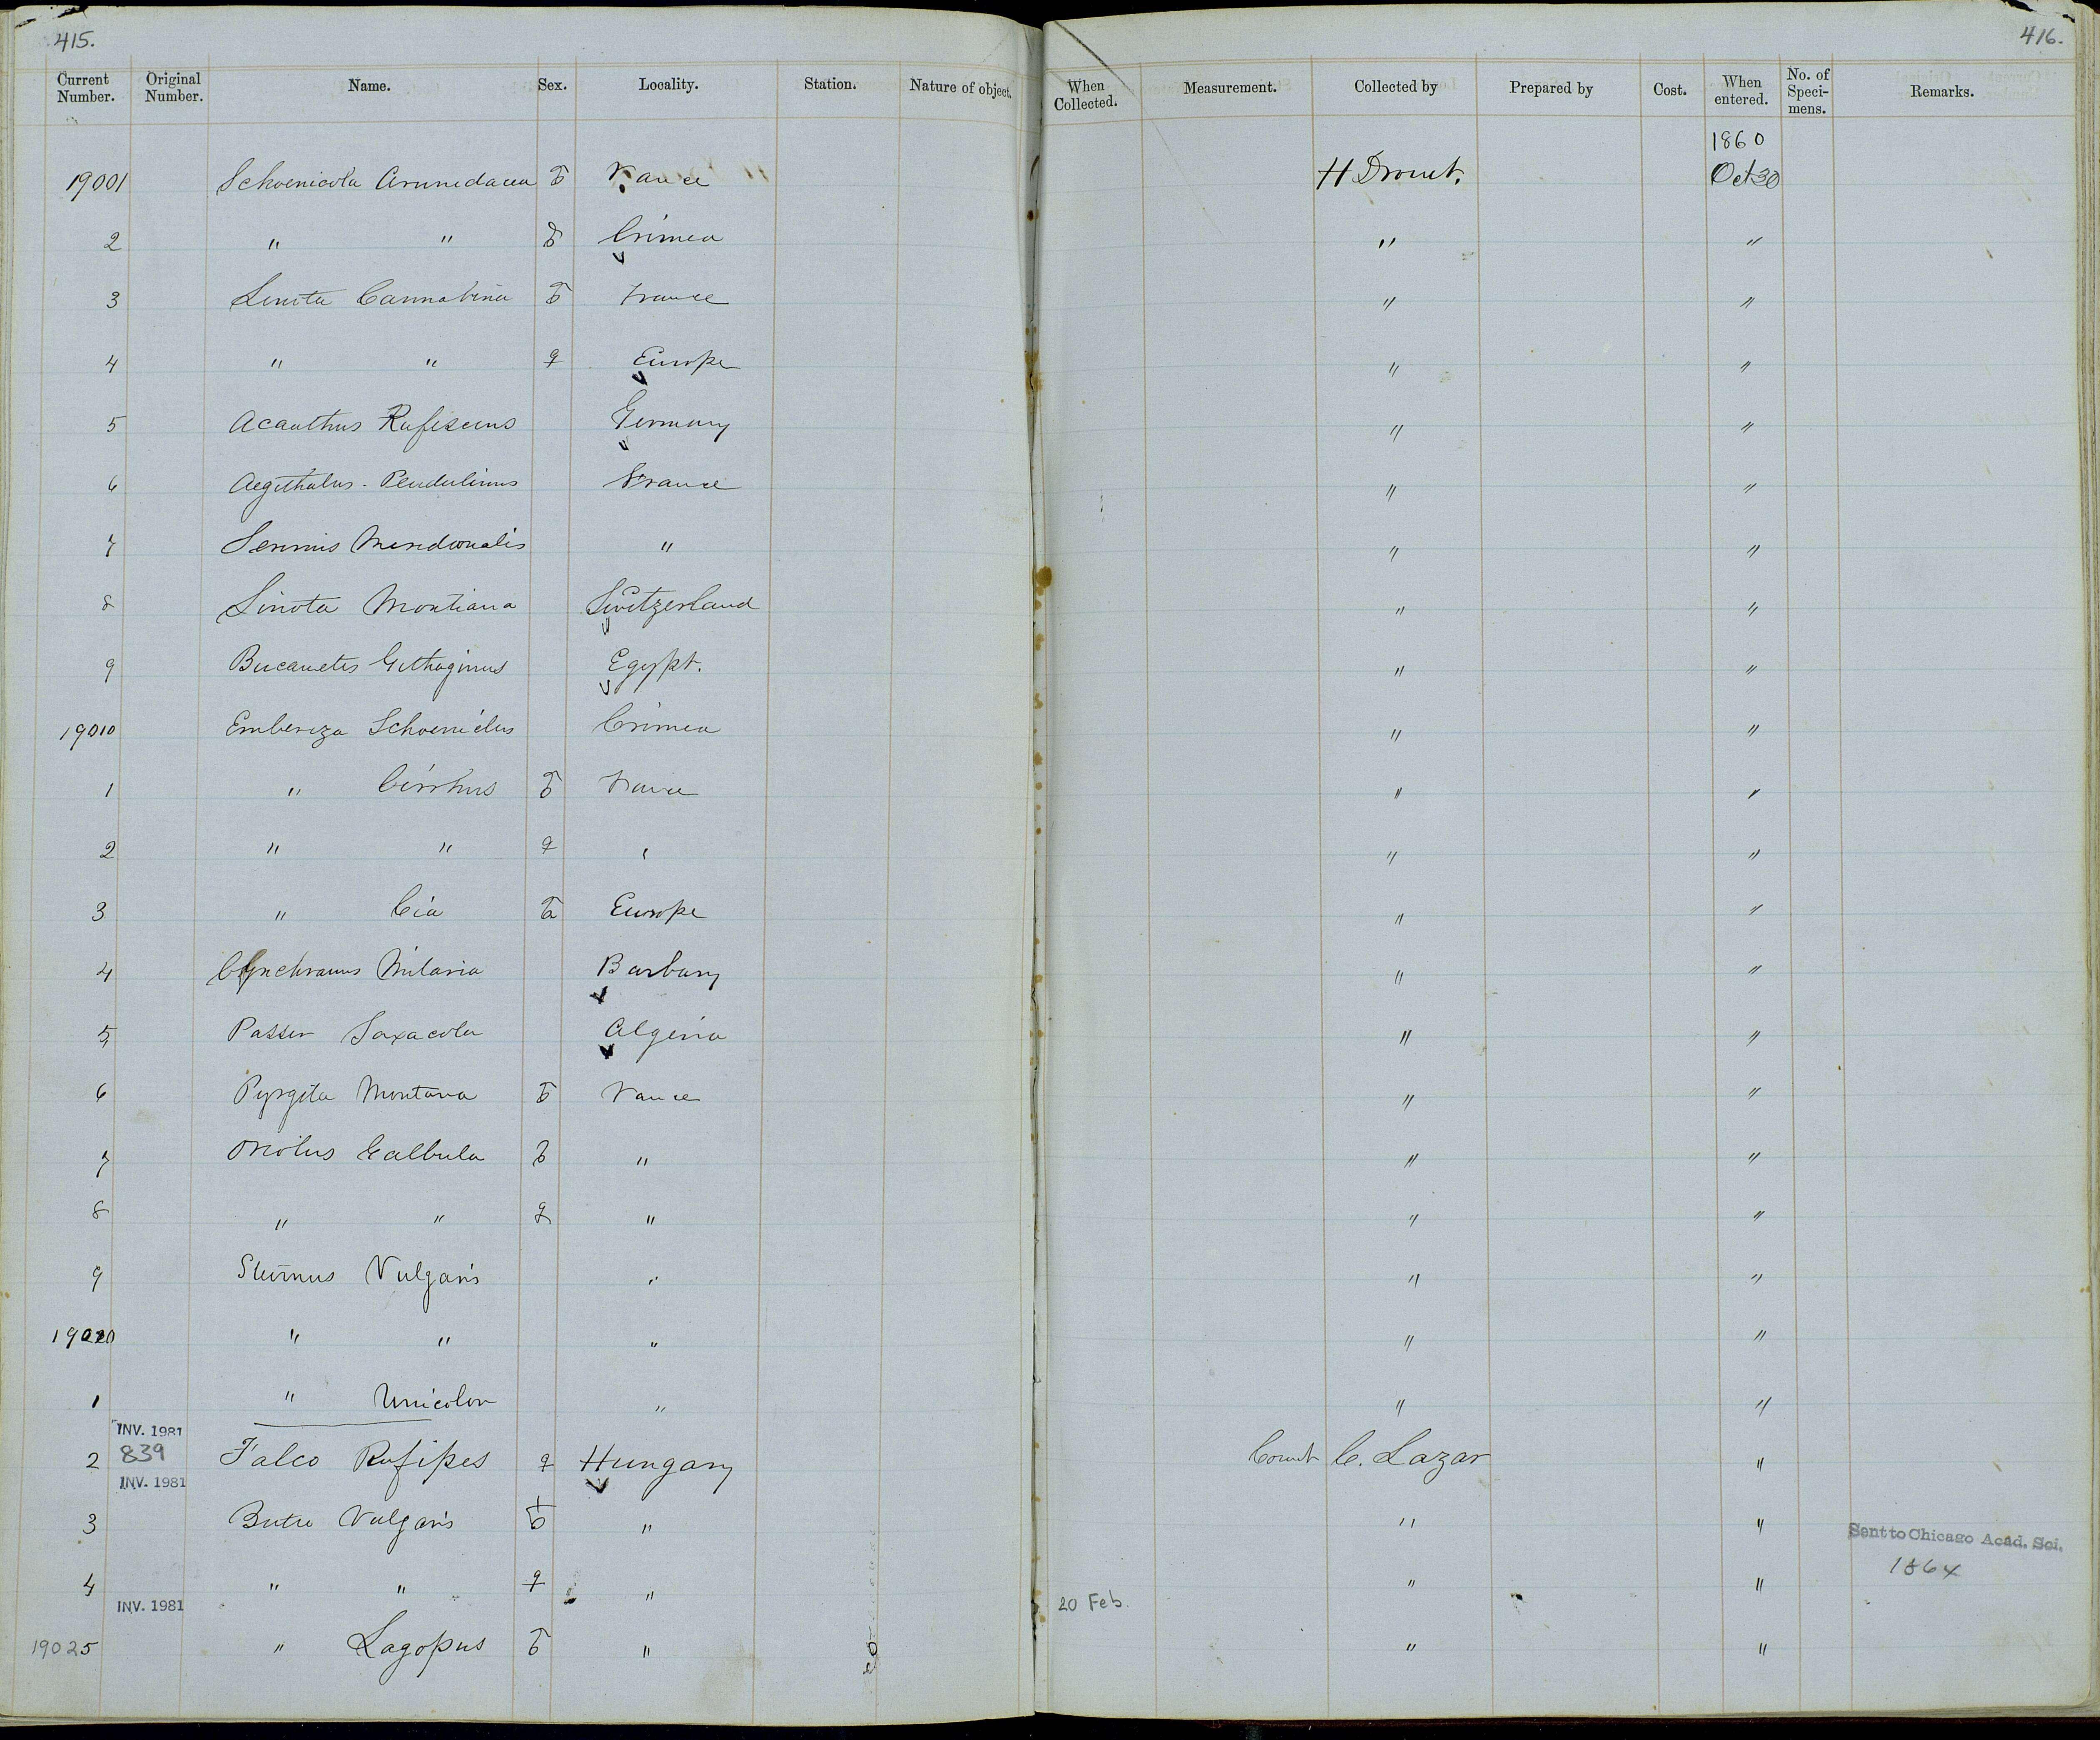 415.
416.
Current Number. Original Number. Name. Sex. Locality. Station. Nature of object. When Collected. Measurement. Collected by Prepared by Cost. When entered. No. of Specimens. Remarks.
1860
19001 Schoenicola Arundacea ♂ France H Drouet. Oct 30
2 " " ♂ Crimea " "
3 Linota Cannabina ♂ France " "
4 " " ♀ Europe " "
5 Acanthus Rufescens Germany " "
6 Aegithalus - Pendulinus France " "
7 Serinus Meridionalis " " "
8 Linota Montiana Switzerland " "
9 Bucanetes Githaginus Egypt. " "
19010 Emberiza Schoeniclus Crimea " "
1 " Cirrhus ♂ France " "
2 " " ♀ " " "
3 " Cia ♂ Europe " "
4 Cynchramus Miliaria Barbary " "
5 Passer Saxacola Algeria " "
6 Pyrgita Montana ♂ France " "
7 Oriolus Galbula ♂ " " "
8 " " ♀ " " "
9 Sturnus Vulgaris " " "
19020 " " " " "
1 " Unicolor " " "
INV. 1981
2 839 Falco Rufipes ♀ Hungary Count C. Lazar "
INV. 1981
3 Buteo Vulgaris ♂ " " " Sent to Chicago Acad. Sci.
1864
4 " " ♀ " " "
INV. 1981 20 Feb.
19025 " Lagopus ♂ " " "